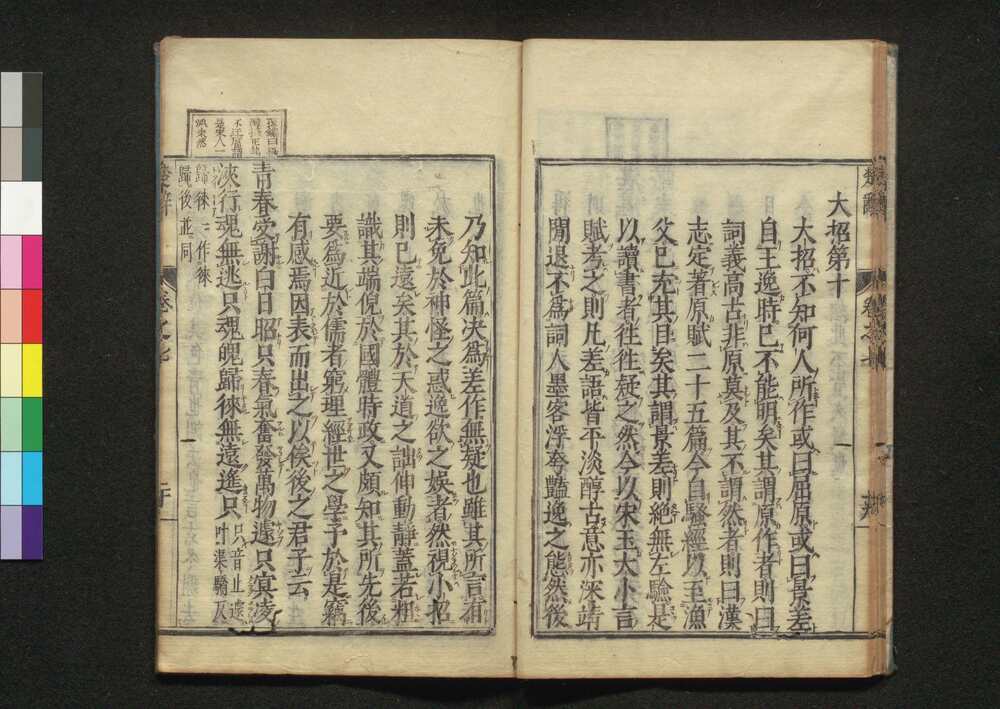 大招第十
大招不知何人所作或曰屈原或曰景差
自王逸時已不能明矣其謂原作者則曰
詞義高古非原莫及其不謂然者則曰漢
志定著原賦二十五篇今自騷經以至漁
父已充其目矣其謂景差則絶無左驗是
以讀書者往往疑之然今以宋玉大小言
賦考之則凡差語皆平淡醇古意亦深靖
閒退不爲詞人墨客浮夸豔逸之態然後
乃知此篇決爲差作無疑也雖其所言有
未免於神怪之惑逸欲之娛者然視小招
則已遠矣其於天道之詘伸動靜蓋若粗
識其端倪於國體時政又頗知其所先後
要爲近於儒者窮理經世之學予於是竊
有感焉因表而出之以俟後之君子云
青春受謝白日昭只春氣奮發萬物遽只冥凌
浹行魂無逃只魂魄歸徠無遠遙只
只音止遽
叶渠驕反
歸徠一作徠
歸後並同
楚辭
卷之七